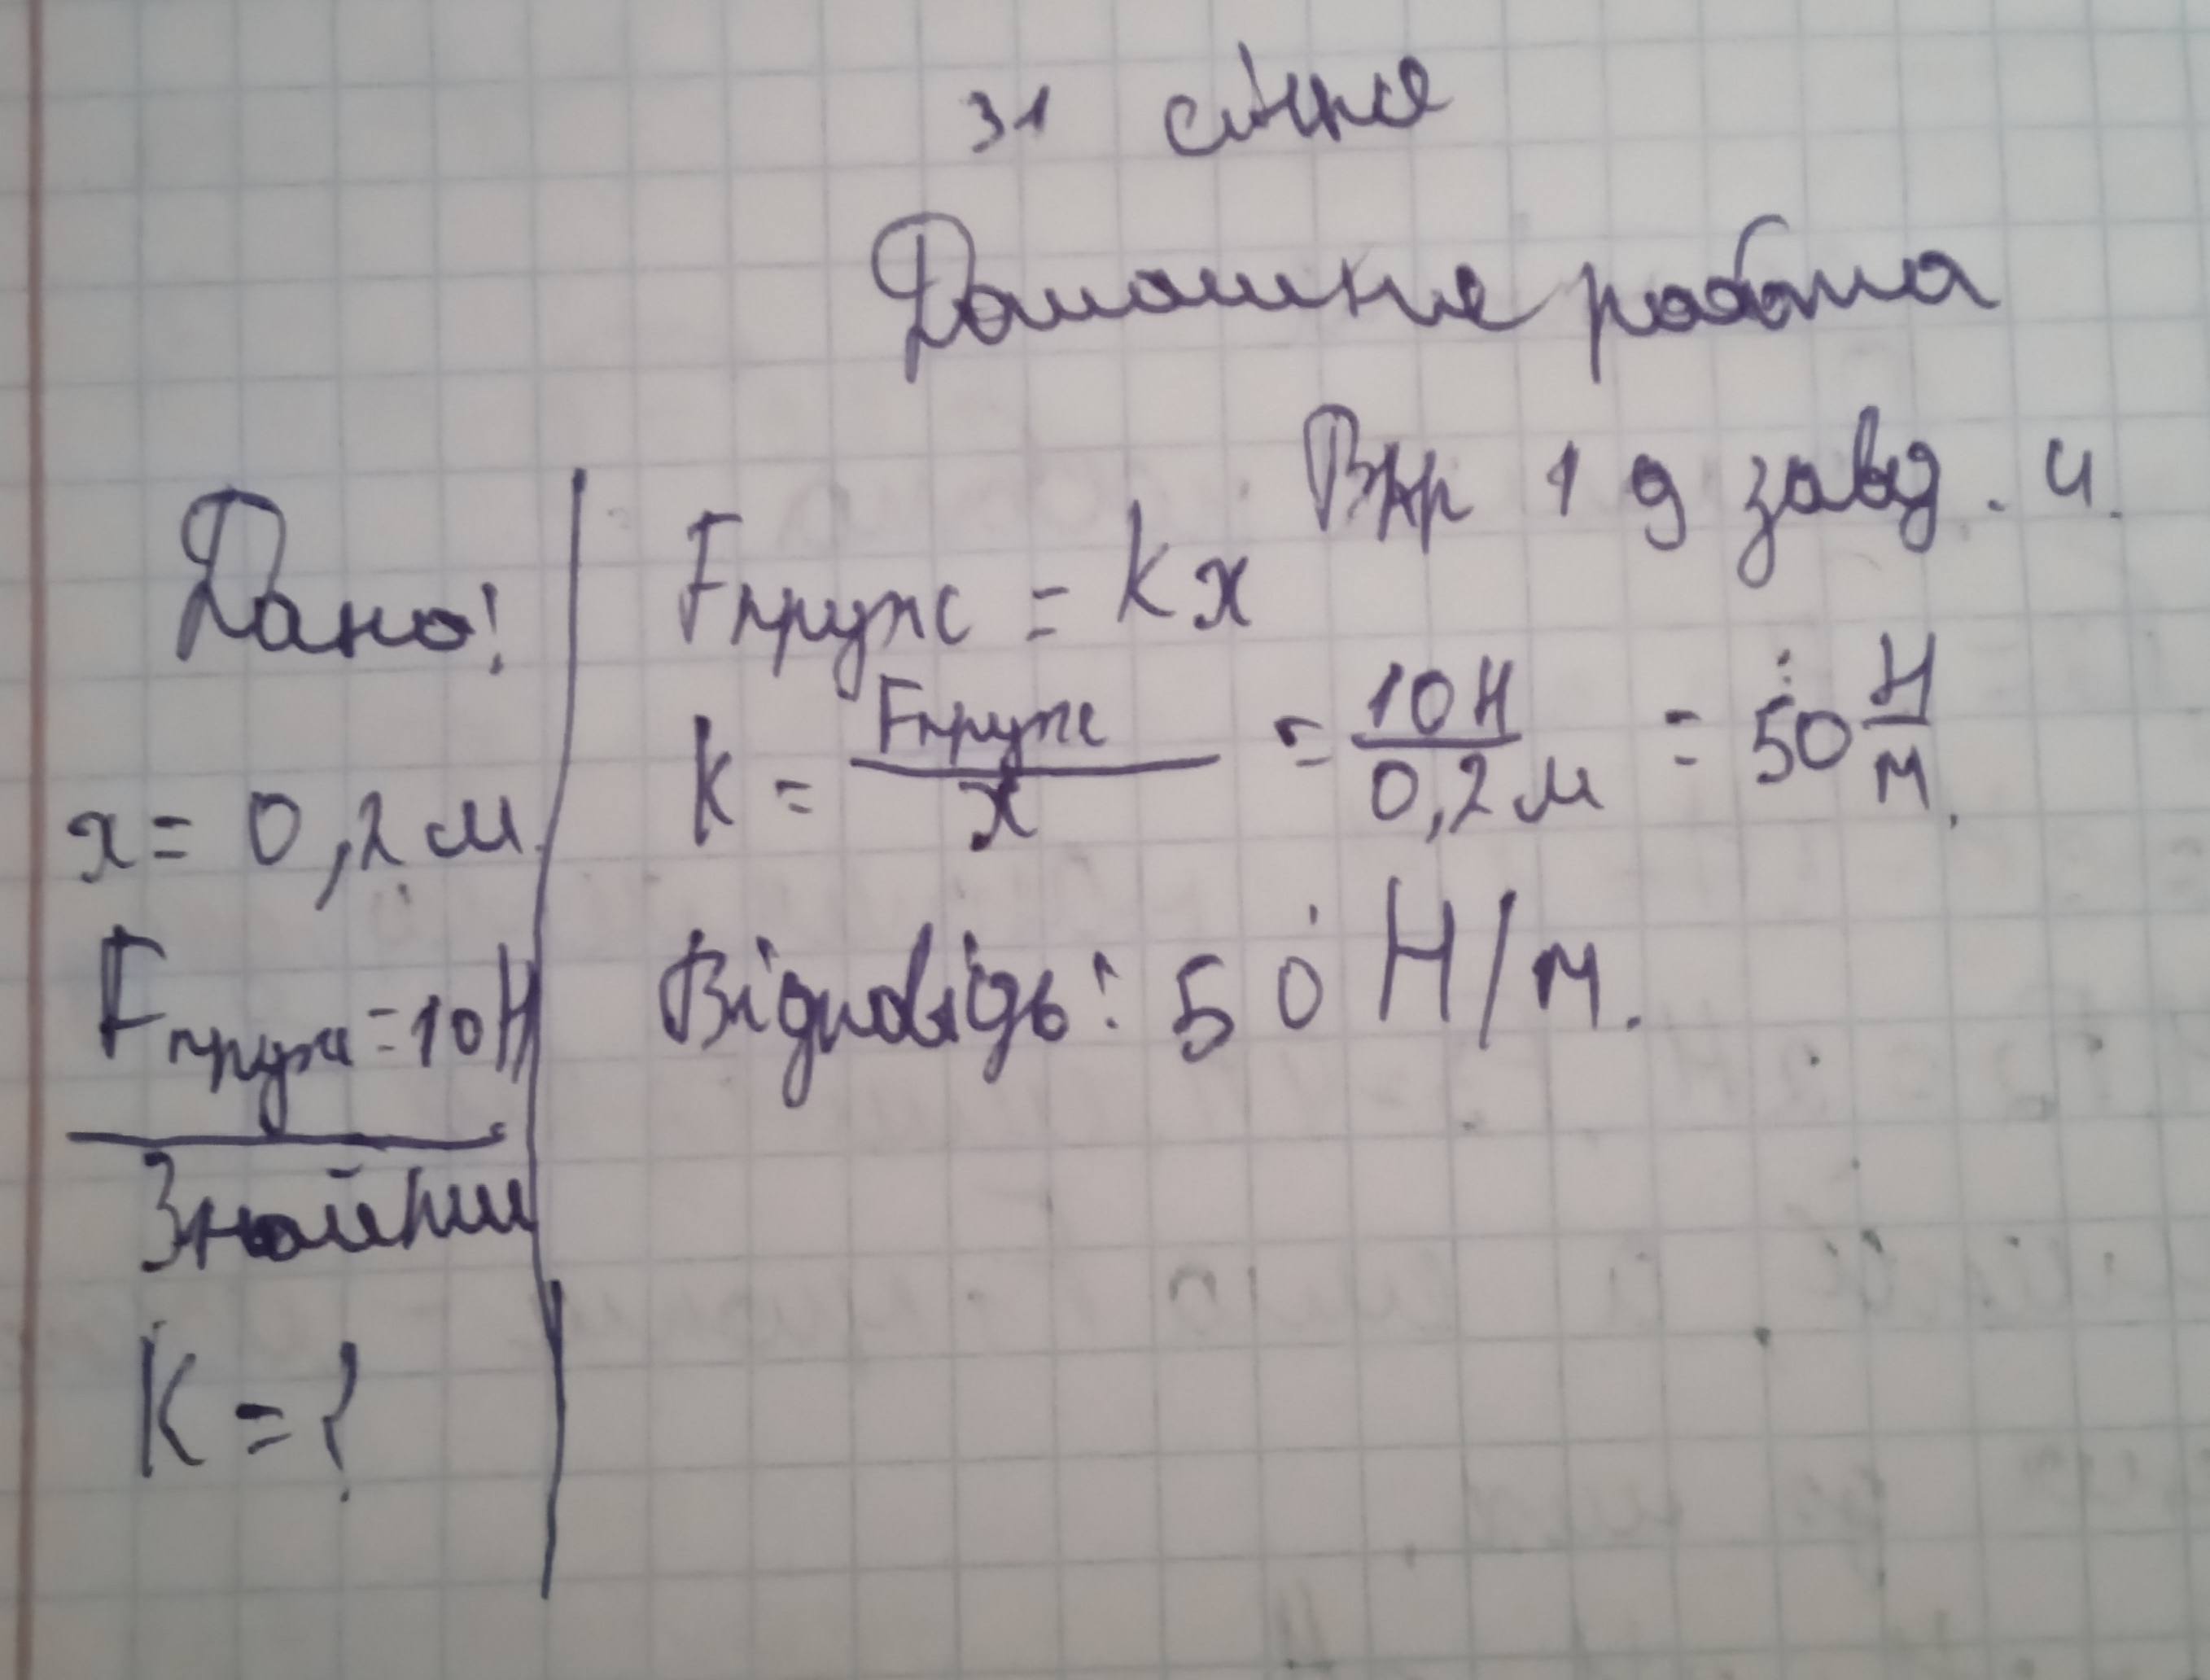 31 січня
Домашня робота
Впр 19 завд. 4.
Дано:
x = 0,2 м.
Fпруж = 10 Н
Знайти
K = ?
Fпруж = kx
k = Fпруж / x = 10 Н / 0,2 м = 50 Н / м.
Відповідь: 50 Н/м.